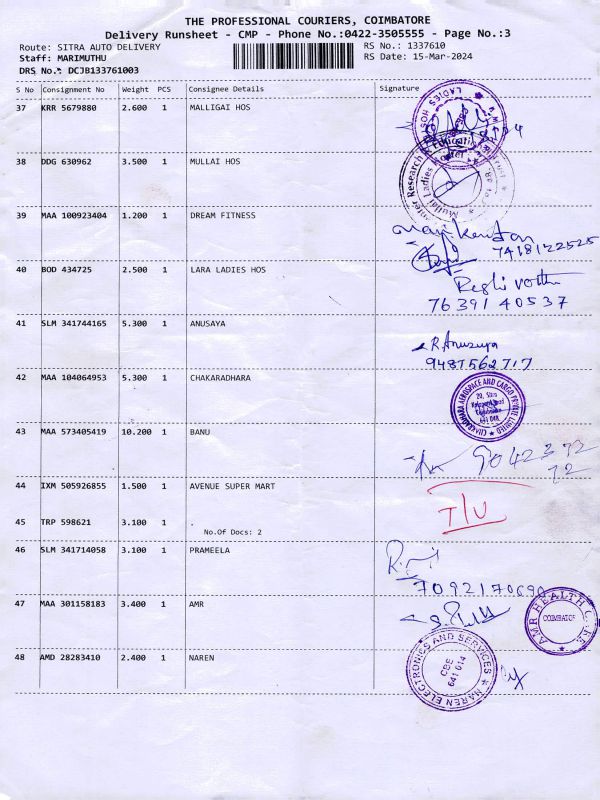 THE PROFESSIONAL COURIERS, COIMBATORE
Delivery Runsheet - CMP - Phone No.:0422-3505555 - Page No.:3
Route: SITRA AUTO DELIVERY RS No.: 1337610
Staff: MARIMUTHU RS Date: 15-Mar-2024
DRS No.: DCJB133761003
S No Consignment No Weight PCS Consignee Details Signature
37 KRR 5679880 2.600 1 MALLIGAI HOS
38 DDG 630962 3.500 1 MULLAI HOS
39 MAA 100923404 1.200 1 DREAM FITNESS
7418122525
40 BOD 434725 2.500 1 LARA LADIES HOS
7639140537
41 SLM 341744165 5.300 1 ANUSAYA
R.Anusuya
9487562717
42 MAA 104064953 5.300 1 CHAKARADHARA
CHAKRADHARA AEROSPACE AND CARGO PRIVATE LIMITED
43 MAA 573405419 10.200 1 BANU
9042372
72
44 IXM 505926855 1.500 1 AVENUE SUPER MART
T/U
45 TRP 598621 3.100 1 .
No.Of Docs: 2
46 SLM 341714058 3.100 1 PRAMEELA
7092170690
47 MAA 301158183 3.400 1 AMR
AMR HEALTH CARE
COIMBATORE
48 AMD 28283410 2.400 1 NAREN
NAREN ELECTRONICS AND SERVICES
CBE
641 014